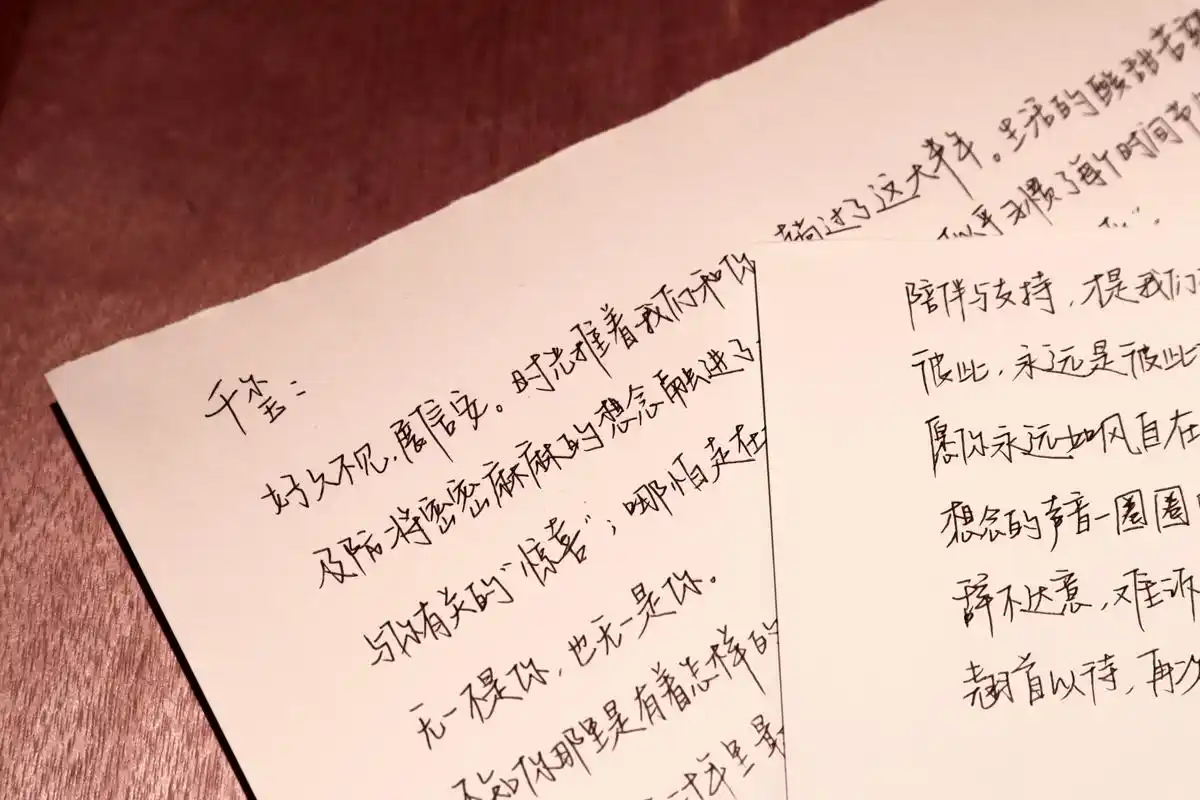 千玺：
好久不见，展信安。时光推着我们和你
淌过了这大半年。生活的酸甜苦
及防将密密麻麻的想念融进了
似乎习惯了每个时间节
与你有关的“惊喜”；哪怕走在
无一不是你，也无一是你。
不知你那里是有着怎样的
陪伴与支持，才是我们
彼此，永远是彼此
愿你永远如风自在
想念的声音一圈圈
辞不达意，难诉
翘首以待，再次